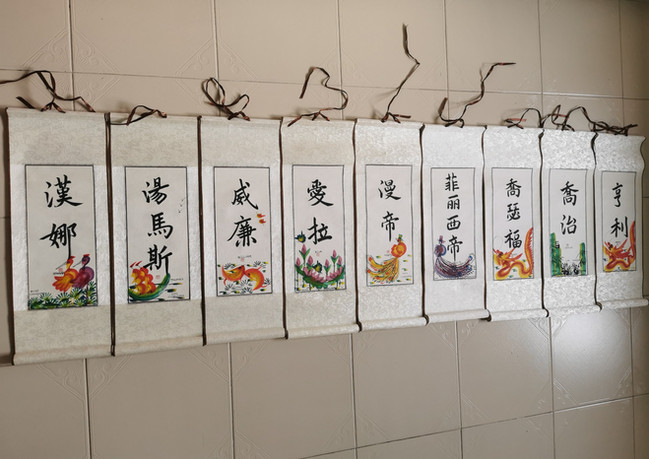 漢娜
湯馬斯
威廉
愛拉
漫帝
菲丽西帝
喬瑟福
喬治
亨利